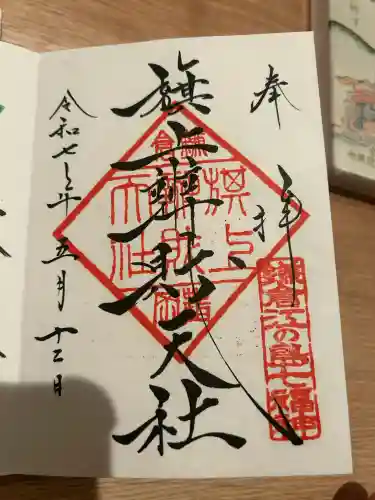 奉拝
旗上弁財天社
令和七年五月十二日
鎌倉
旗上弁財天社
鎌倉江の島七福神